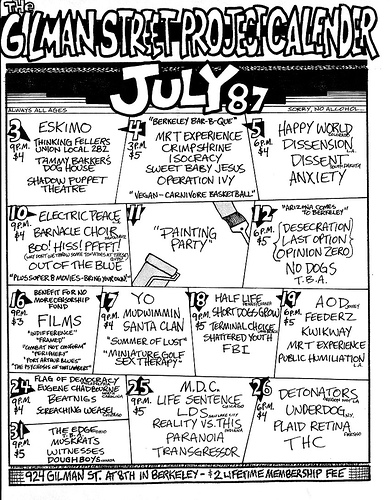 THE
GILMAN STREET PROJECT CALENDER
JULY 87
ALWAYS ALL AGES
SORRY, NO ALCOHOL...
3
9 P.M.
$4
ESKIMO
THINKING FELLERS
UNION LOCAL 282
TAMMY BAKKER'S
DOG HOUSE
SHADOW PUPPET
THEATRE
4
3 P.M.
$5
"BERKELEY BAR-B-QUE"
MR T EXPERIENCE
CRIMPSHRINE
ISOCRACY
SWEET BABY JESUS
OPERATION IVY
"VEGAN-CARNIVORE BASKETBALL"
5
6 P.M.
$4
HAPPY WORLD
DISSENSION
DISSENT
ANXIETY
10
9 P.M.
$4
ELECTRIC PEACE
BARNACLE CHOIR
BOO! HISS! PFFFT!
OUT OF THE BLUE
"PLUS SUPER 8 MOVIES-BRING YOUR OWN!"
11
"PAINTING
PARTY"
12
6 P.M.
$5
"ARIZONA COMES
TO BERKELEY"
DESECRATION
LAST OPTION
OPINION ZERO
NO DOGS
T.B.A.
16
9 P.M.
$3
BENEFIT FOR NO
MORE CENSORSHIP
FUND
FILMS
"INDIFFERENCE"
"FRAMED"
"COMBAT NOT CONFORM"
"PERIPHERY"
"PORT ARTHUR BLUES"
17
9 P.M.
$4
YO
MUDWIMMIN
SANTA CLAN
"SUMMER OF LUST"
"MINIATURE GOLF
SEX THERAPY"
18
9 P.M.
$5
HALF LIFE
SHORT DOGS GROW
TERMINAL CHOICE
SHATTERED YOUTH
FBI
19
6 P.M.
$5
AOD
FEEDERZ
KWIKWAY
MR T EXPERIENCE
PUBLIC HUMILIATION
L.A.
24
9 P.M.
$4
FLAG OF DEMOCRACY
EUGENE CHADBOURNE
BEATNIGS
SCREACHING WEASEL
25
9 P.M.
$5
M.D.C.
LIFE SENTENCE
LDS
REALITY VS. THIS
PARANOIA
TRANSGRESSOR
26
6 P.M.
$4
DETONATORS
UNDERDOG
PLAID RETINA
THC
31
9 P.M.
$5
THE EDGE
MUSKRATS
WITNESSES
DOUGHBOYS
924 GILMAN ST. AT 8TH IN BERKELEY - $2 LIFETIME MEMBERSHIP FEE